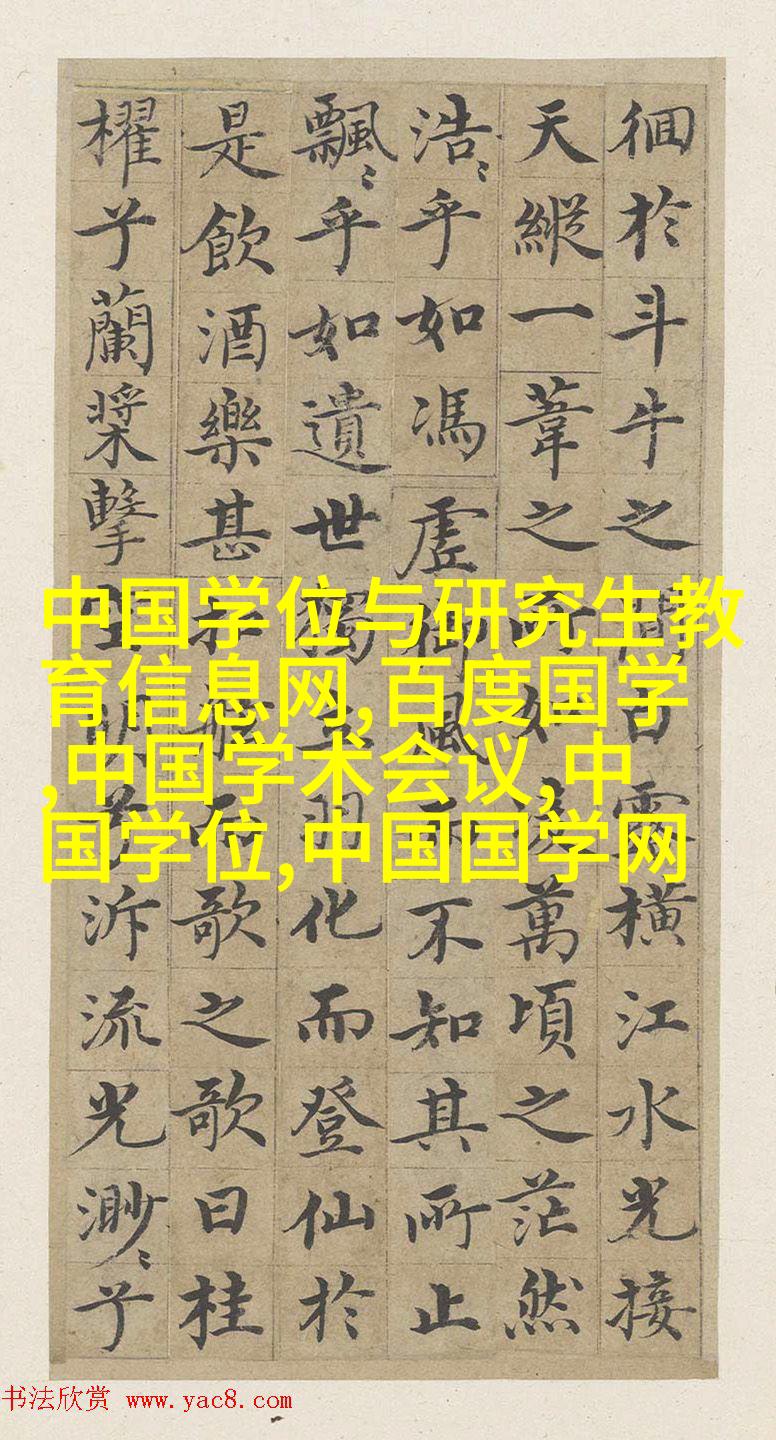 徊於斗牛之間白露橫江水光接
天縱一葦之所如淩萬頃之茫然
浩〻乎如馮虛御風而不知其所止
飄〻乎如遺世獨立羽化而登仙於
是飲酒樂甚扣舷而歌之歌曰桂
櫂兮蘭槳擊空明兮泝流光渺〻兮
中国学位与研究生教
育信息网,百度国学
,中国学术会议,中
国学位,中国国学网
书法欣赏 www.yac8.com